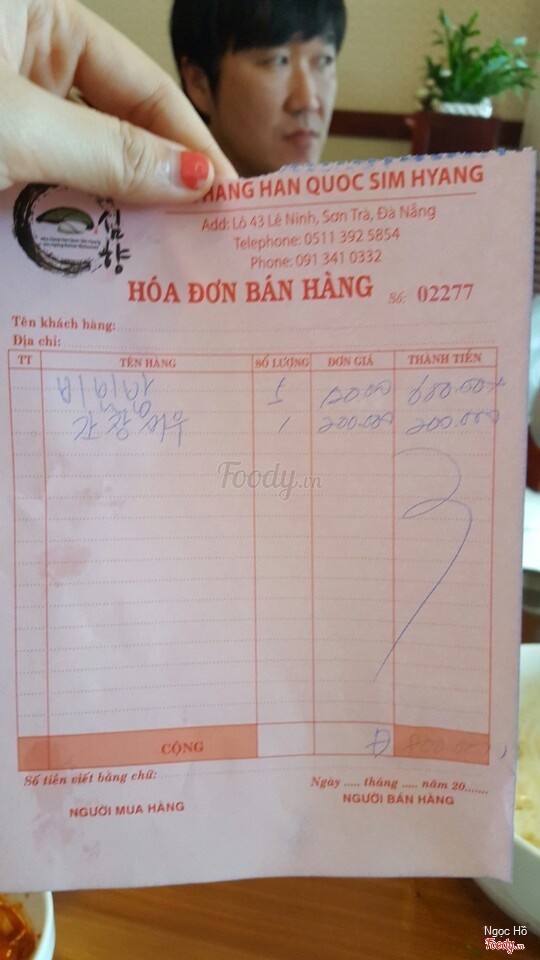 심향
HANG HAN QUOC SIM HYANG
Add: Lô 43 Lê Ninh, Sơn Trà, Đà Nẵng
Telephone: 0511 392 5854
Phone: 091 341 0332
HÓA ĐƠN BÁN HÀNG Số: 02277
Tên khách hàng:
Địa chỉ:
TT TÊN HÀNG SỐ LƯỢNG ĐƠN GIÁ THÀNH TIỀN
1 200.000 200.000
Foody.vn
CỘNG 800.000
Số tiền viết bằng chữ:
Ngày ..... tháng ..... năm 20.......
NGƯỜI MUA HÀNG NGƯỜI BÁN HÀNG
Ngọc Hồ
Foody.vn